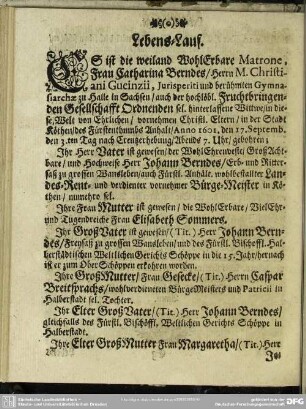 Lebens-Lauf.
ES ist die weiland WohlErbare Matrone,
Frau Catharina Berndes/ Herrn M. Christi-
ani Gueinzii, Jurisperiti und berühmten Gymna-
siarchæ zu Halle in Sachsen/ auch der hochlöbl. Fruchtbringen-
den Gesellschafft Ordnenden sel. hinterlassene Wittwe/in die-
se/Welt von Ehrlichen/ vornehmen Christl. Eltern/ in der Stadt
Köthen/des Fürstenthumbs Anhalt/ Anno 1601, den 17. Septemb.
den 3.ten Tag nach Creutzerhebung/ Abends 7. Uhr/ gebohren.
Ihr Herr Vater ist gewesen/der WohlEhrenveste/ GroßAcht-
bare/ und Hochweise Herr Johann Berndes/ Erb- und Ritter-
saß zu grossen Wansleben/ auch Fürstl. Anhält. wohlbestallter Lan-
des-Rent- und verdienter vornehmer Bürge-Meister in Kö-
then/ nunmehro sel.
Ihre Frau Mutter ist gewesen/ die WohlErbare/ VielEhr-
und Tugendreiche Frau Elisabeth Sommers.
Ihr GroßVater ist gewesen/ (Tit.) Herr Johann Bern-
des/ Freysaß zu grossen Wansleben/ und des Fürstl. Bischoffl. Hal-
berstädtischen Weltlichen Gerichts Schöppe in die 15. Jahr/hernach
ist er zum Ober Schöppen erkohren worden.
Ihre GroßMutter/ Frau Gesecke/ (Tit.) Herrn Caspar
Breitsprachs/ wohlverdieneten BürgeMeisters und Patricii in
Halberstadt sel. Tochter.
Ihr Elter GroßVater/ (Tit.) Herr Johann Berndes/
gleichfalls des Fürstl. Bischöffl. Weltlichen Gerichts Schöppe in
Halberstadt.
Ihre Elter GroßMutter Frau Margaretha/ (Tit.) Herr